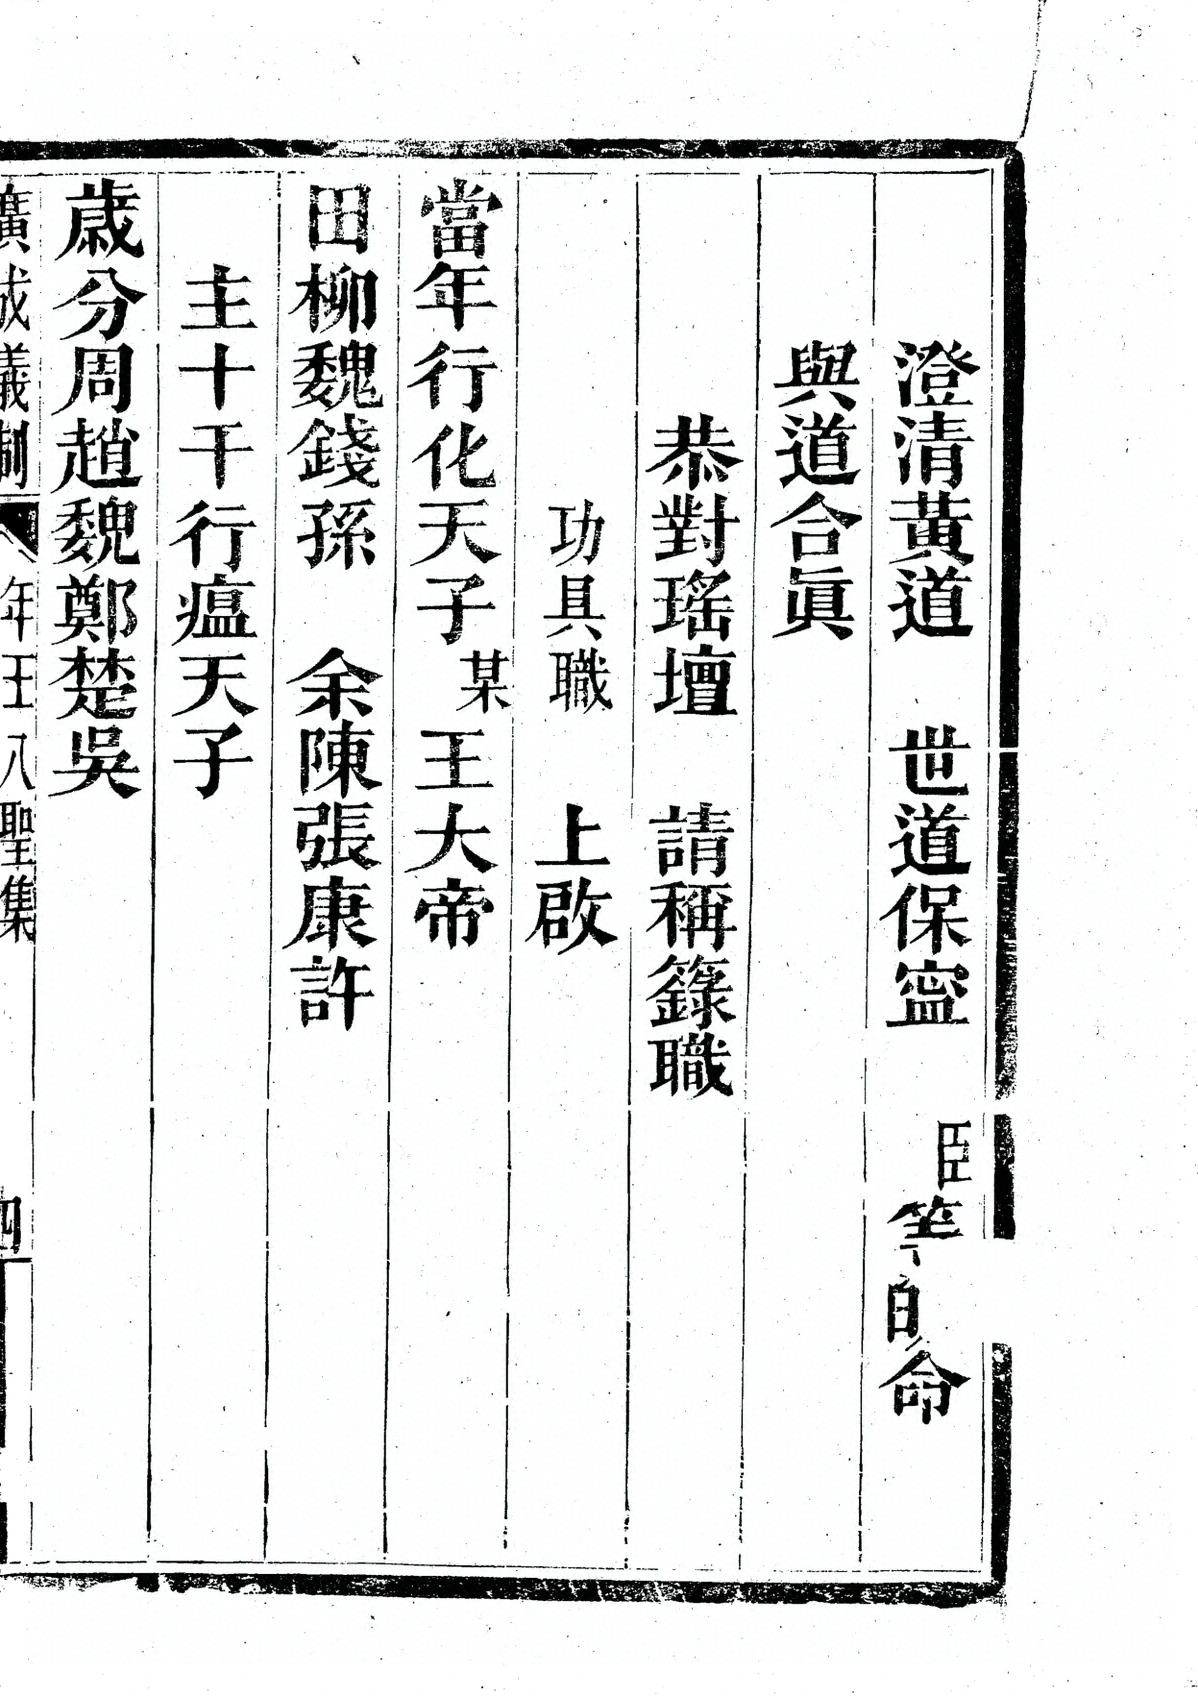 澄清黃道　世道保寧　臣等皈命
與道合眞
恭對瑤壇　請稱籙職
功具職　上啟
當年行化天子某王大帝
田柳魏錢孫　余陳張康許
主十干行瘟天子
歲分周趙魏鄭楚吳
廣成儀制　年王八聖集　四